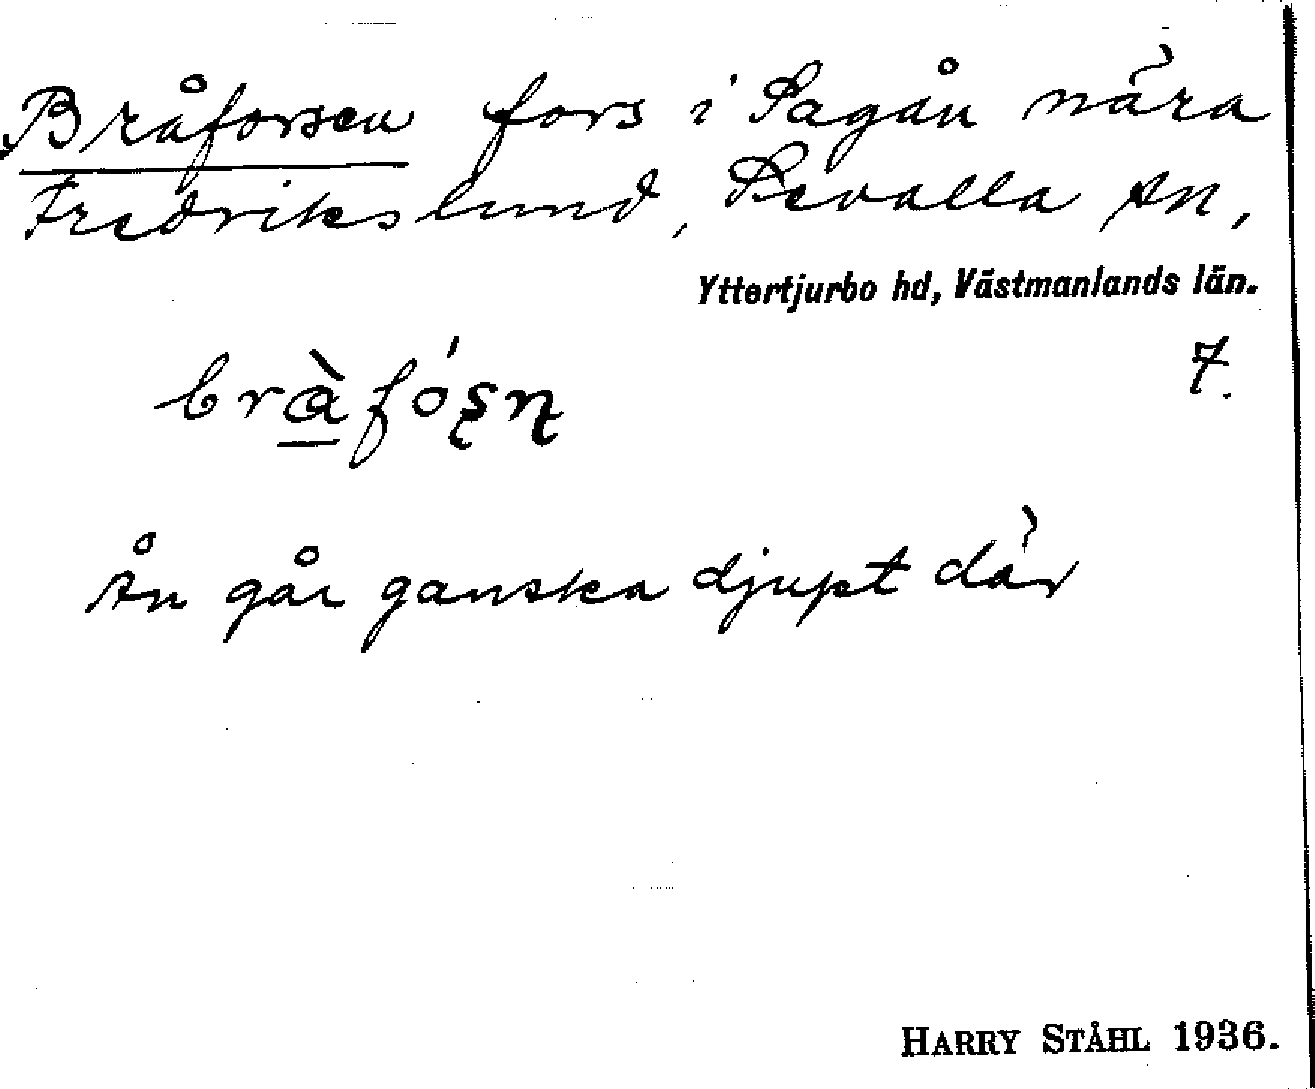 Bråforsen fors i Sagån nära
Fredrikslund, Sevalla sn,
Yttertjurbo hd, Västmanlands län.
7.
bràfóʂɳ
Ån går ganska djupt där
HARRY STÅHL 1936.